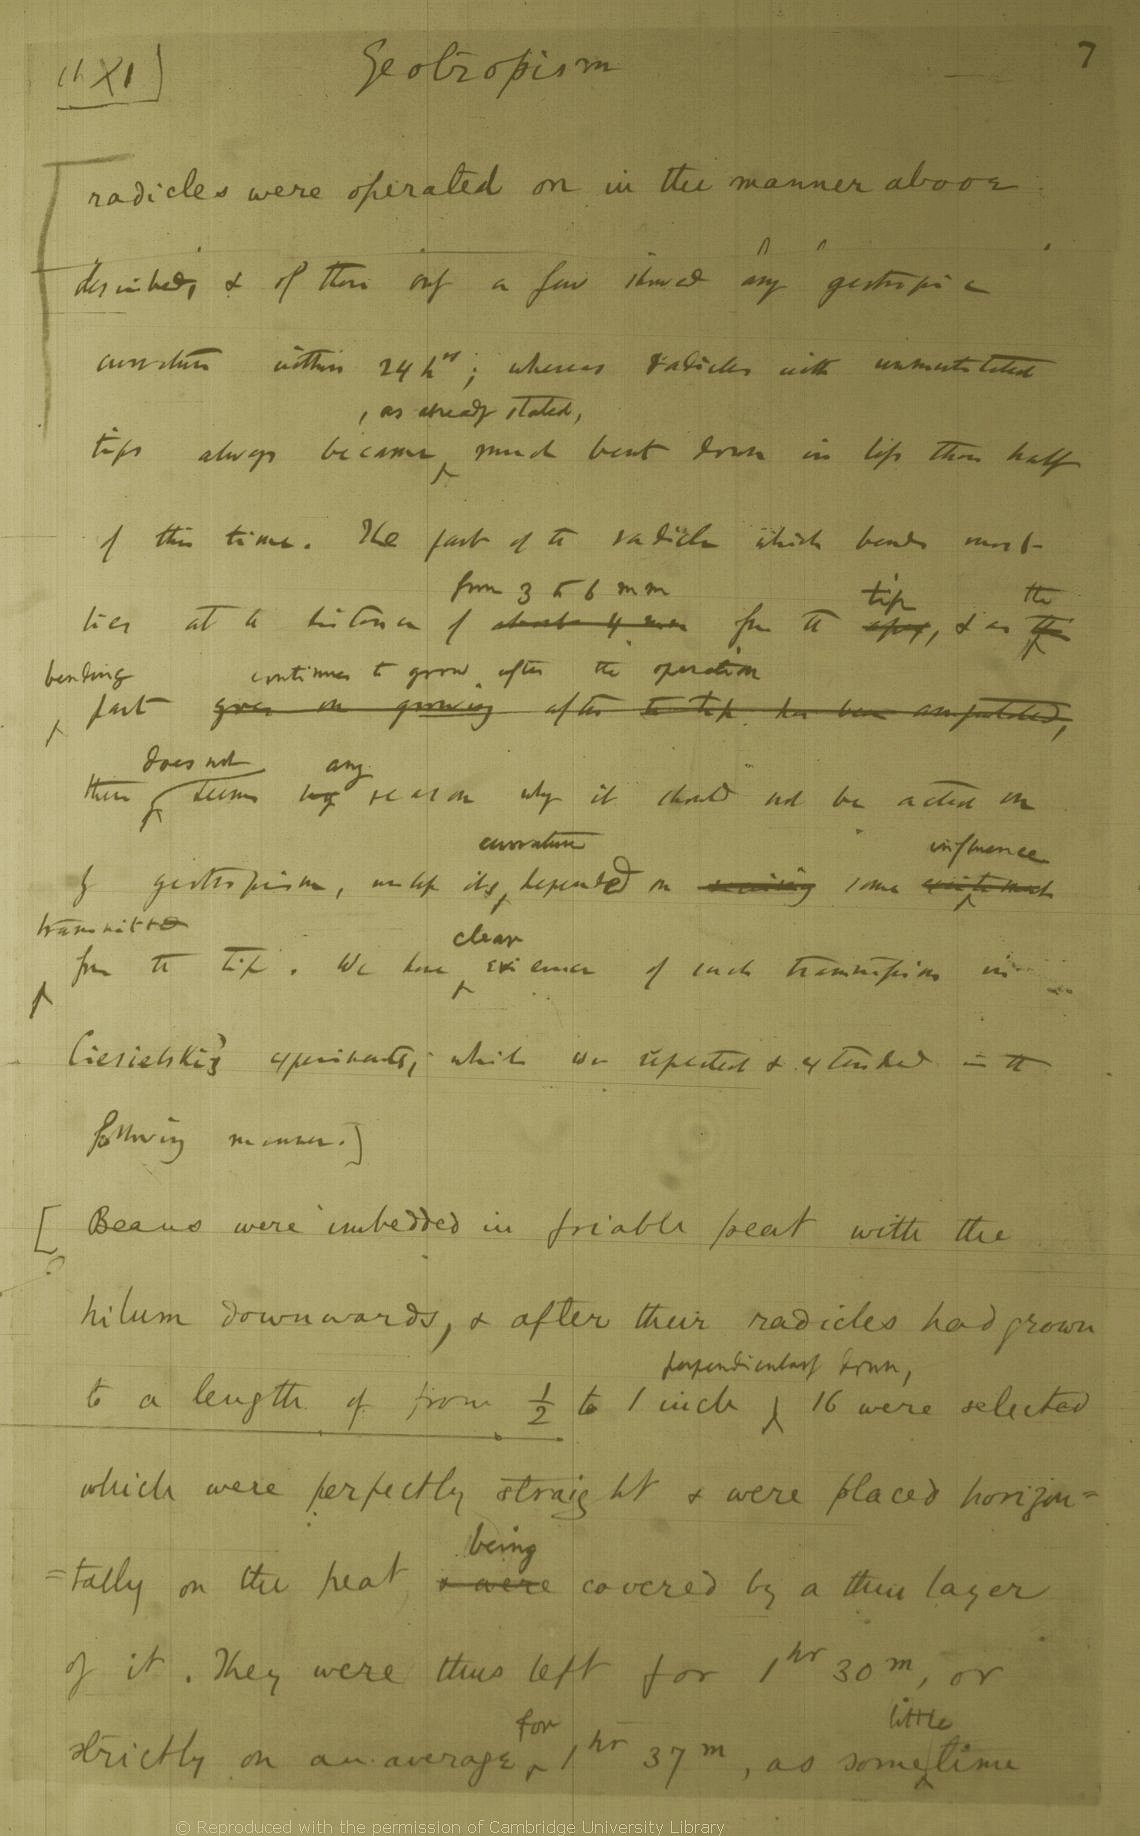 Ch XI]
Geotropism
7
radicles were operated on in the manner above
described, & of these only a few showed any geotropic
curvature within 24 hrs; whereas radicles with unmutilated
, as already stated,
tips always became much bent down in less than half
of this time. The part of the radicle which bends most
from 3 to 6 mm tip the
lies at a distance of about 4 mm from the apex, & as the
bending continues to grow after the operation
part goes on growing after the tip has been amputated,
does not any
there seems no reason why it should not be acted on
curvature influence
by geotropism, unless its depended on some
transmitted clear
from the tip. We have evidence of such transmission in
Ciesielski's experiments, which we repeated & extended in the
following manner.]
[Beans were imbedded in friable peat with the
hilum downwards, & after their radicles had grown
perpendicularly down,
to a length of from 1/2 to 1 inch 16 were selected
which were perfectly straight & were placed horizon=
being
=tally on the peat & were covered by a thin layer
of it. They were thus left for 1 hr 30 m, or
for little
strictly on an average, 1 hr 37 m, as some time
© Reproduced with the permission of Cambridge University Library